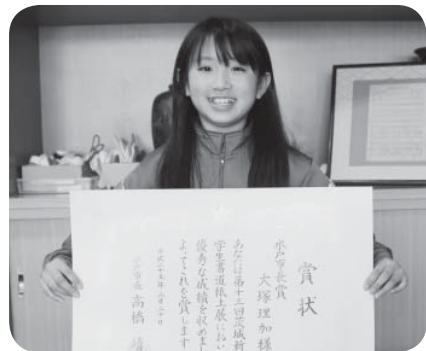 賞状
水戸市長賞
大塚理加様
あなたは第十三回茨城新
学生書道紙上展におい
優秀な成績を収めまし
よってこれを賞します
平成二十五年
市長 高橋 靖